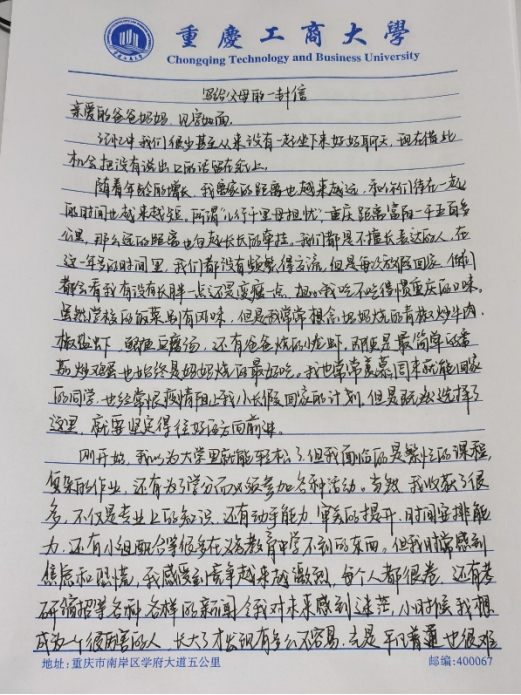 重慶工商大學
Chongqing Technology and Business University
写给父母的一封信
亲爱的爸爸妈妈，见字如面。
记忆中我们很少甚至从来没有一起坐下来好好聊天，现在借此
机会把没有说出口的话留在纸上。
随着年龄的增长，我离家的距离也越来越远，和你们待在一起
的时间也越来越短。所谓“儿行千里母担忧”，重庆距离富阳一千五百多
公里，那么远的距离也有越长长的牵挂。我们都是不擅长表达的人，在
这一年多的时间里，我们都没有频繁得交流，但是每次放假回家，你们
都会看我有没有长胖一点还是变瘦一点，担心我吃不吃得惯重庆的口味。
虽然学校的饭菜别有风味，但是我常常想念妈妈烧的青椒炒牛肉、
椒盐虾、鲫鱼豆腐汤，还有爸爸烧的小龙虾，即便是最简单的番
茄炒鸡蛋也始终是妈妈烧的最好吃。我也常常羡慕周末就能回家
的同学，也经常恨疫情阻止我小长假回家的计划，但是既然选择了
这里，就要坚定得往好的方向前进。
刚开始，我以为大学里就能轻松了但我面临的是繁忙的课程，
复杂的作业，还有为了学分而必须参加各种活动，当然，我收获了很
多，不仅是专业上的知识，还有动手能力、审美的提升、时间安排能
力，还有小组配合等很多在义务教育中学不到的东西。但我时常感到
焦虑和恐慌，我感受到竞争越来越激烈，每个人都很卷，还有考
研缩招等各种各样的新闻令我对未来感到迷茫，小时候我想
成为一个很厉害的人，长大了才发现有多么不容易，光是平凡普通也很难
地址:重庆市南岸区学府大道五公里
邮编:400067